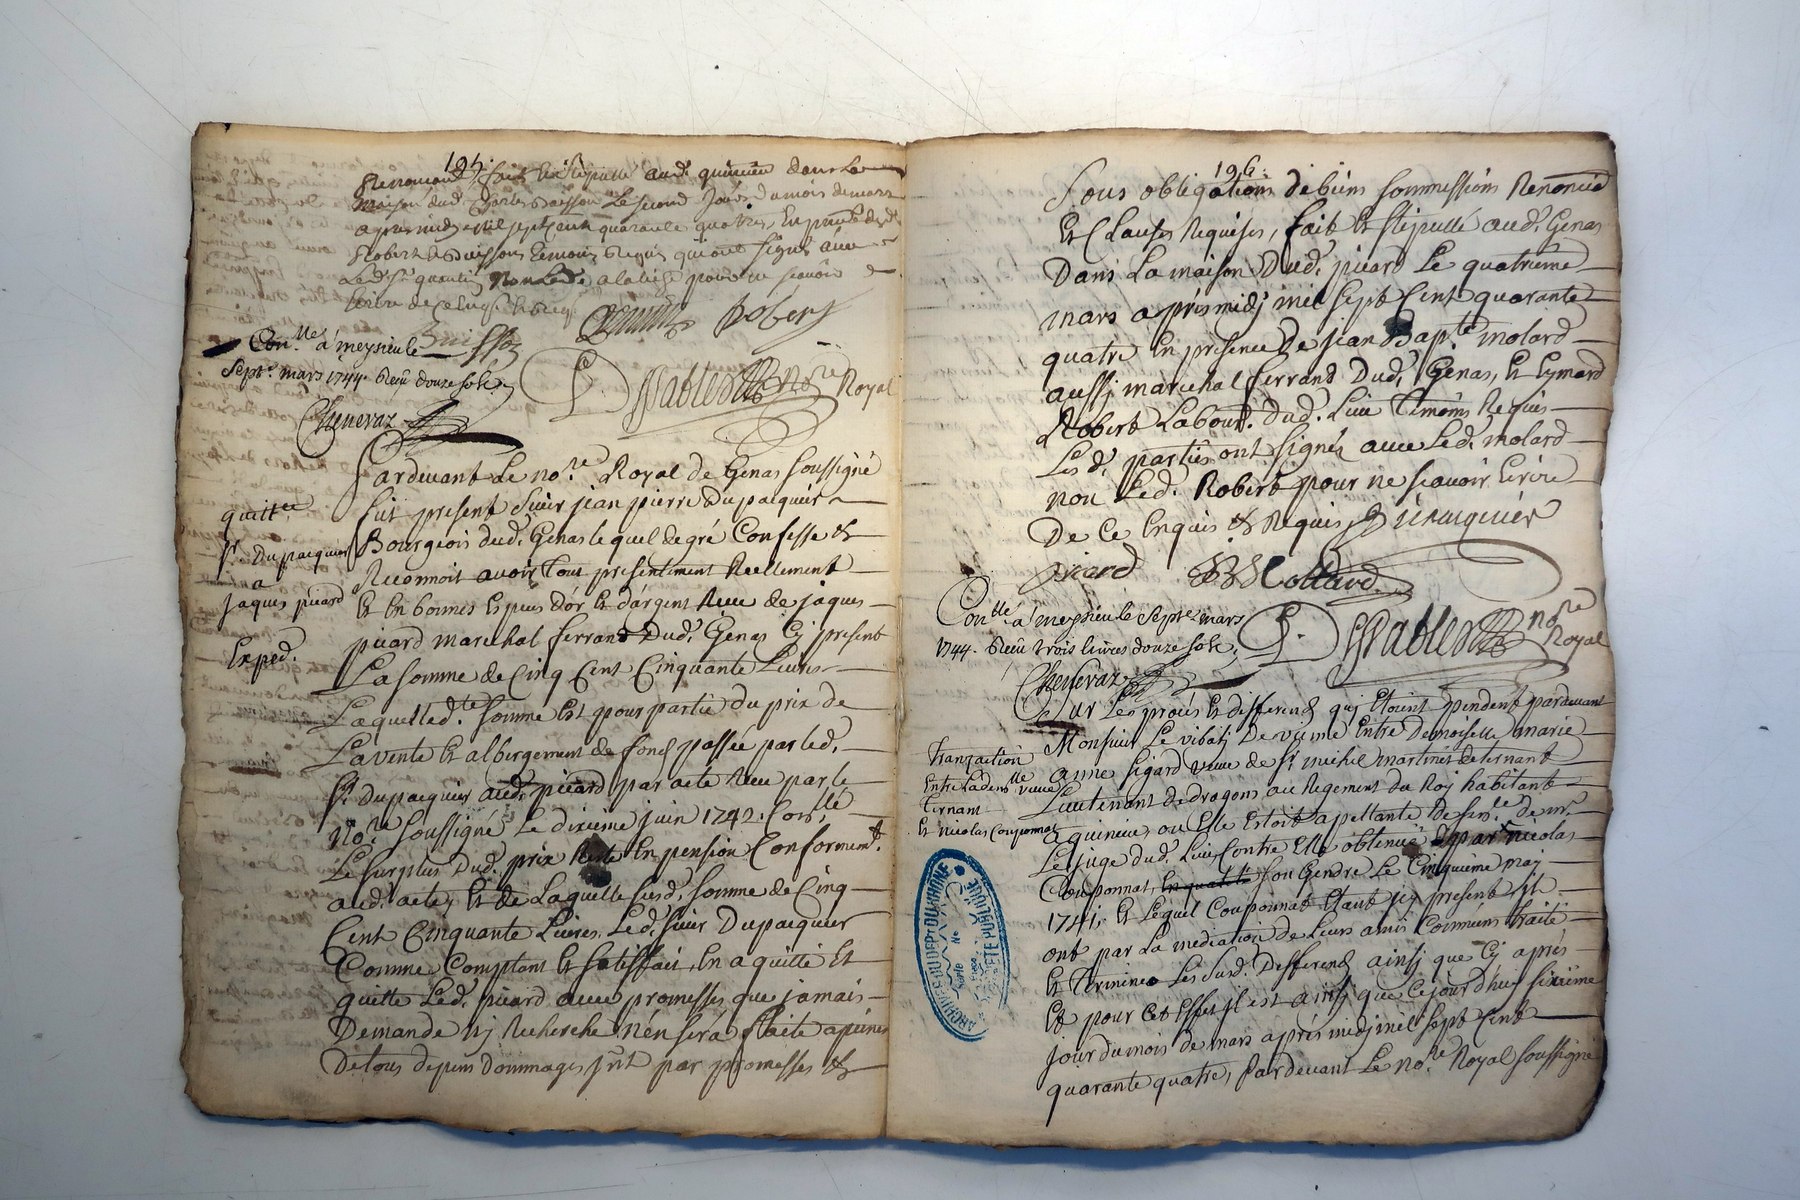 195.
Renonciã. fait et stipullé aud. quinieu dans la
maison dud. Buisson le second jour du mois de mars
apres midy mil sept cent quarante quatre, en presence desd.
Robert et Buisson temoins requis qui ont signé avec
led. Sr. quantin, non led. pour ne sçavoir
ecrire de ce enquis et requis
Robert
Buisson
Con.lle a meysieu le
Sept.e mars 1744. Reçu douze sols
Royal
Chenevaz
Pardevant le no.re Royal de Genas soussigné
fut present Sieur jean pierre Dupacquier
Bourgeois dud. Genas lequel de gré Confesse et
Reconnoit avoir tout presentement Reellement
et en bonnes Especes d'or et d'argent Receu de jaques
picard marechal ferrand Dud. Genas Cy present
La somme de Cinq Cent Cinquante Livres
Laquelle d.te somme est pour partie du prix de
La vente et albergement de fond passée par led.
Sr. Dupacquier aud. picard par acte Receu par le
no.re soussigné Le dixieme juin 1742. Con.llé
Le surplus Dud. prix Reste en pension Conformem.t
aud. acte, et de Laquelle susd. somme de Cinq
Cent Cinquante Livres, Led. sieur Dupacquier
Comme Comptant et satisfait, en a quitté et
quitte Led. picard avec promesses que jamais
Demande ny Recherche n'en sera faite a peines
De tous depens dommages jnt. par promesses et
quitt.ce
Sr. Dupacquier
a
Jaques picard
Exped.
196.
Sous obligations de biens soummissions Renoncia
et Clauses Requises, fait et stipullé aud. Genas
Dans La maison Dud. picard Le quatrieme
mars apres midy mil sept Cent quarante
quatre en presence De jean Bap.te molard
aussy marechal ferrand Dud. Genas, et Eymard
Robert Labour. Dud. Lieu temoins Requis
Les d. parties ont signés avec Led. molard
non Led. Robert pour ne sçavoir Ecrire
De Ce Enquis et Requis Dupacquier
picard JB Mollard
Con.lle a meysieu le Sept.e mars
1744. Reçu trois livres douze sols
no.re Royal
Chenevaz
Sur Les procés et differend quj Etoint pendent pardevant
Monsieur Le vibally De vienne Entre Demoiselle marie
anne sigard veuve de Sr. michel martin de ternant
Lieutenant de dragons au Regiment du Roy habitante
a quinieu, ou Elle Estoit apellante de sen.ce de mr.
Le juge dud. Lieu Contre Elle obtenuë par Sr. nicolas
Couponnat, en qualité son Gendre Le Cinquieme may
1741; et Lequel Couponnat Etant jcy present jls
ont par La mediation de Leurs amis Communs traité
et terminé Les susd. Differend ainsj que Cy aprés
Et pour Cet Effet jl est ainsy que Cejourd'huy sixieme
jour du mois de mars aprés midj mil sept Cent
quarante quatre, Pardevant Le no.re Royal soussigné
Tranzaction
Entre La dem.lle veuve
Ternant
Et Nicolas Couponnat
ARCHIVES DU DEPT DU RHONE
PUBLIQUE